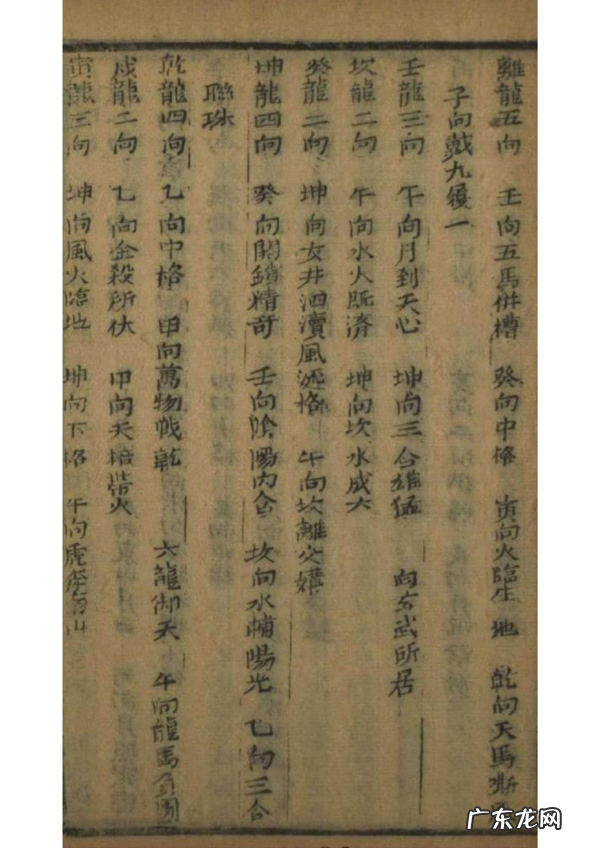 離龍五向　壬向五馬併槽　癸向中格　寅向火臨生地　乾向天馬嘶
子向戴九履一
壬龍三向　午向月到天心　坤向三合雄猛　向玄武所居
坎龍二向　午向水火既濟　坤向坎水成六
癸龍二向　坤向女井泗瀆風　格　午向坎離交媾
坤龍四向　癸向関鎖精奇　壬向陰陽內含　坎向水輔陽光　乙向三合
聯珠
乾龍四向　乙向中格　甲向萬物戰乾　六龍御天　午向龍馬負圖
戌龍二向　乙向金殺所伏　甲向天　火
寅龍三向　坤向風火臨地　坤向下格　午向虎
广东龙网